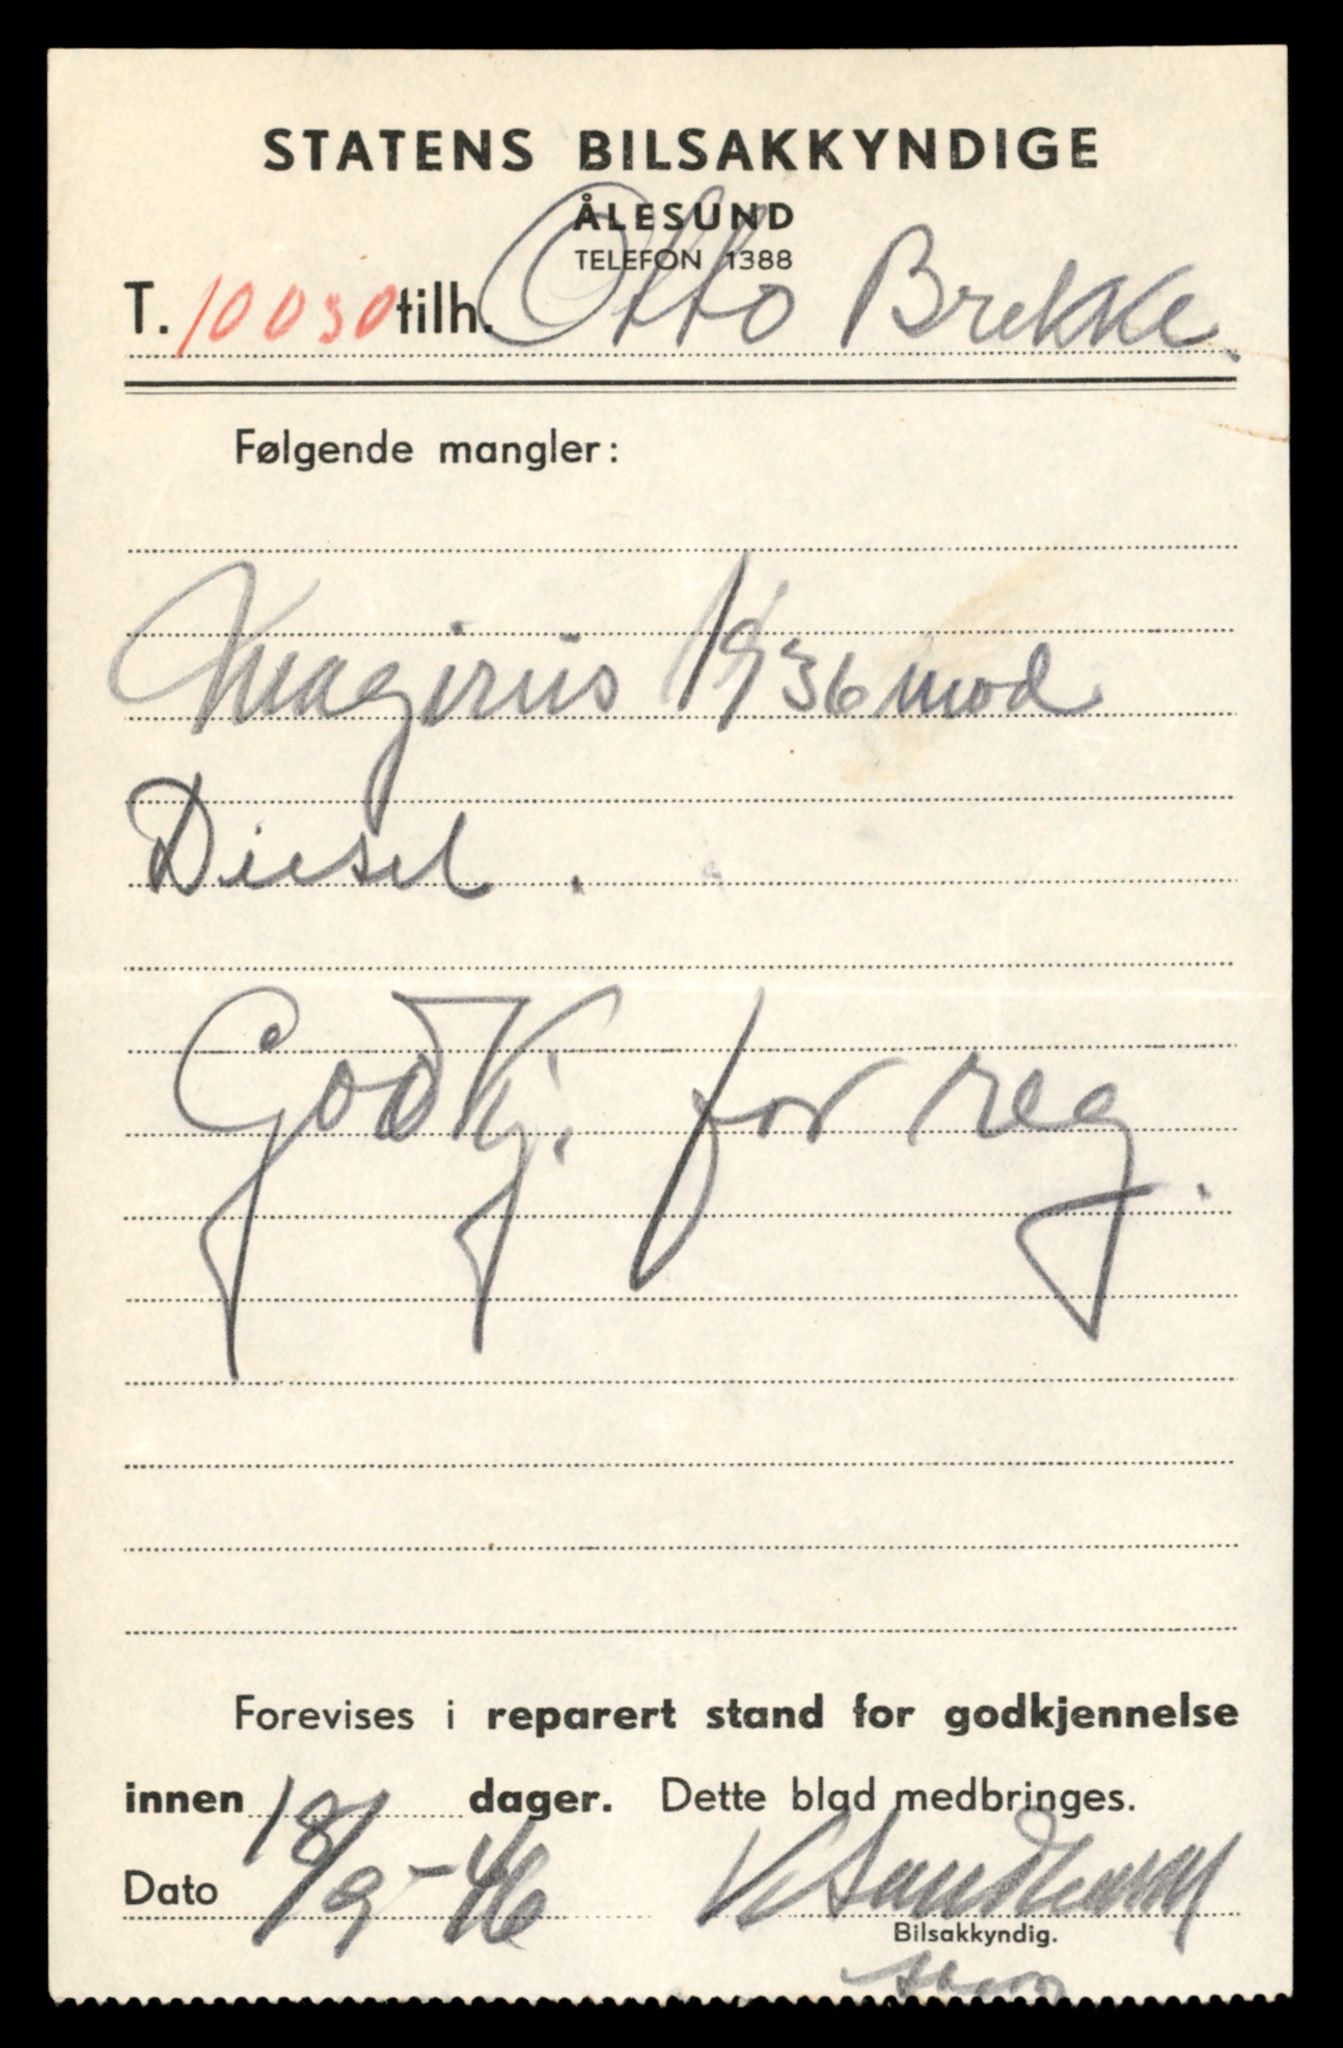 STATENS BILSAKKYNDIGE
ÅLESUND
TELEFON 1388
T. 10030 tilh. Otto Brekke.
Følgende mangler:
Magirus 1936 mod
Diesel.
Godkj. for reg.
Forevises i reparert stand for godkjennelse
innen dager. Dette blad medbringes.
Dato 18/9-46
Bilsakkyndig.